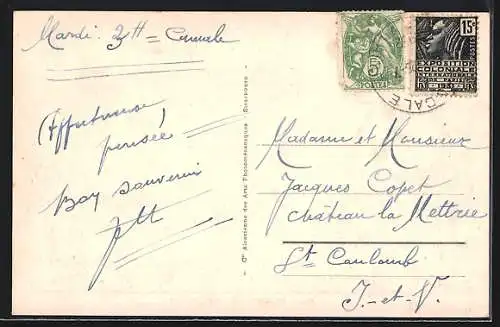 Mardi. 2H = Cancale
Affectueuse
pensée
Bon souvenir
Cie Alsacienne des Arts Photomécaniques - Strasbourg
5
POSTES
15c
POSTES
EXPOSITION
COLONIALE
INTERNATIONALE
DE PARIS
1931
CALE
Madame et Monsieur
Jacques Copet
château la Mettrie
St Coulomb
I.-et-V.